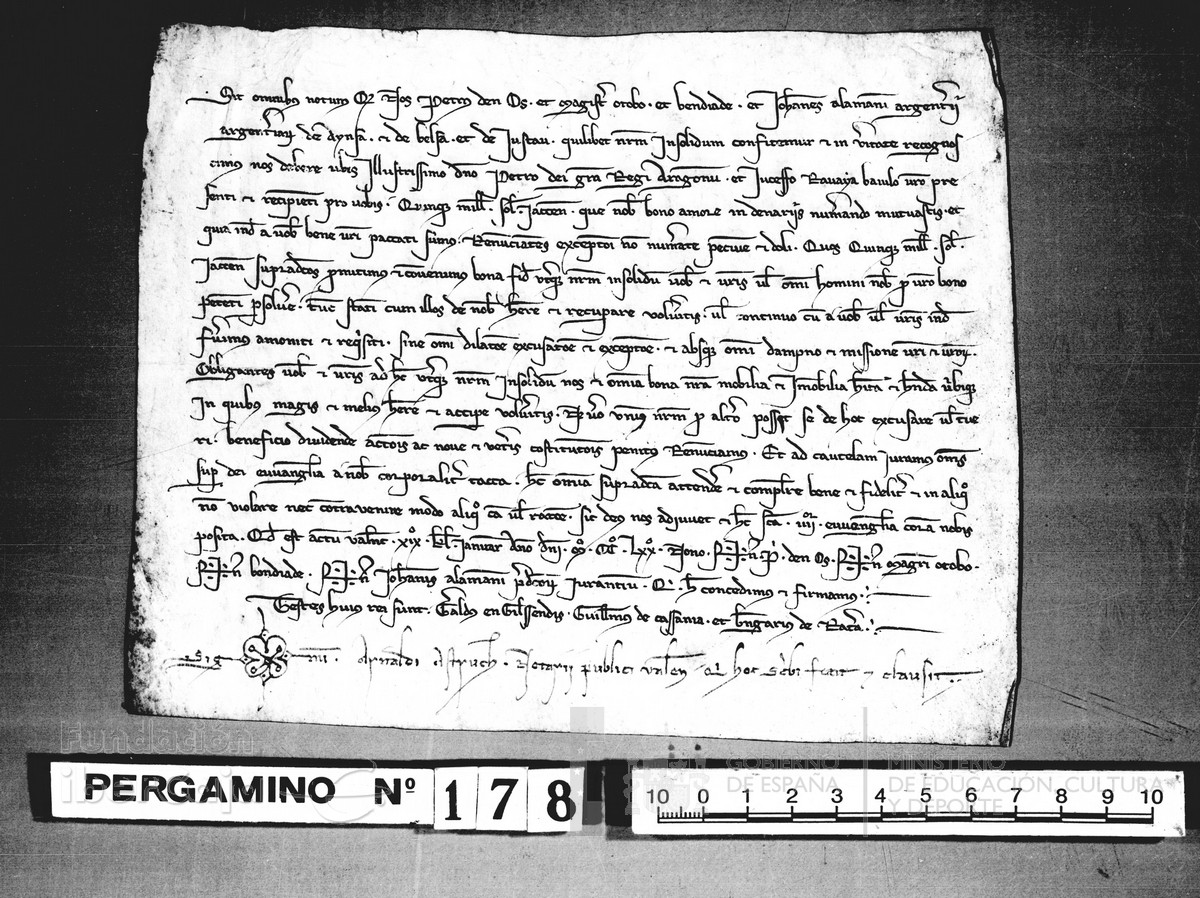 Sit omnibus notum Qr Nos Petrus den Os. et magistr otobo. et bendiade. et Johanes alamani argentii
argentarii de Aynsa. et de belsa. et de Justau. quilibet nrm Insolidum confitemur et in veritate recognos
cimus nos debere vobis Illustrissimo dno Petro dei gra Regi Aragonum. et Juceffo Ravaya baiulo vro pre
senti et recipienti pro vobis. Quinque mill. sol. Jaccen. que nob bono amore in denariis numerando mutuastis. et
quia inde a vob bene vri paccati sumus. Renunciates excepcoi no numerate pecunie et doli. Quos Quinque mill. sol.
Jaccen supradcos promitimus et convenimus bona fide utrque nrm insolidum vob et vris vl omi homini nob p vro bono
petenti psolvere. tunc stati cum illos de nob here et recuperare volueritis. vl continuo cum a vob vl vris inde
fuerimus amoniti et reqisiti. sine omi dilacoe excusacoe et excepcoe. et absque omi dampno et missione vri et vror.
Obligantes vob et vris ad hec utrque nrm Insolidum nos et omia bona nra mobilia et Imobilia hita et hnda ubique
In quibus magis et melius here et accipe volueritis. Et vero unus nrm p altero posset se de hoc excusare vl tue
ri. beneficio dividende accois ac nove et veteris costitucois penitus Renunciamus. Et ad cautelam Juramus omes
sup dei euuangelia a nob corporaliter tacta. hec omia supradca attendere et complere bene et fideliter et in aliquo
no violare nec contravenire modo aliquo ca vl racoe. sic deus nos adiuvet et hec sca. iiijor euuangelia coram nobis
posita. Qd est actum valent. xix. kl. Januar dno dnj. mo. CCo. Lxxo. Nono. Sig num P. den Os. Sig num magri otobo.
Sig num bondiade. Sig num Johanis alamani pdcorum Jurantium. Qi hec concedimus et firmamus.
Testes huius rei sunt. Geraldus en Gilssendis. Guillmus de cassania. et bngarius de Raca.
Sig num. Arnaldi Astruch. Notarii publici valen Qi hoc scribi fecit et clausit.
PERGAMINO Nº 178
10 0 1 2 3 4 5 6 7 8 9 10
Fundación
GOBIERNO
DE ESPAÑA
MINISTERIO
DE EDUCACIÓN, CULTURA
Y DEPORTE